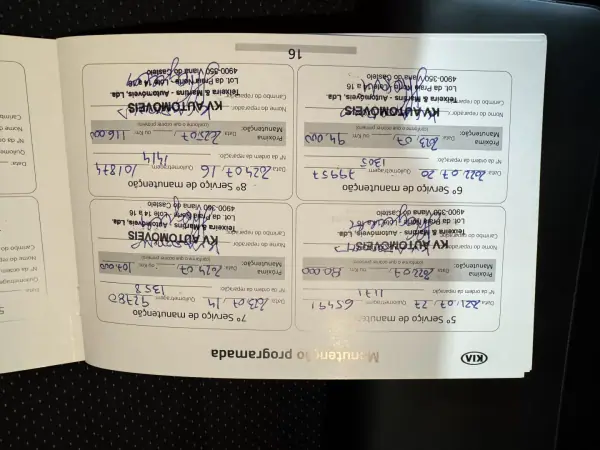 KIA
Manutenção programada
5º Serviço de manutenção
Data 2021,07,27 Quilometragem 65491
Nº da ordem de reparação 1171
Próxima Manutenção: Data 2022,07, ou Km 80.000
(conforme o que ocorrer primeiro)
Nome do reparador
KV AUTOMÓVEIS
Carimbo do reparador
Teixeira & Martins - Automóveis, Lda.
Lot. da Praia Norte
4900-350 Viana do Castelo
6º Serviço de manutenção
Data 2022,07,20 Quilometragem 79957
Nº da ordem de reparação 1305
Próxima Manutenção: Data 2023,07, ou Km 94.000
(conforme o que ocorrer primeiro)
Nome do reparador
KV AUTOMÓVEIS
Carimbo do reparador
Teixeira & Martins - Automóveis, Lda.
Lot. da Praia Norte
4900-350 Viana do Castelo
7º Serviço de manutenção
Data 2023,07,14 Quilometragem 92780
Nº da ordem de reparação 1358
Próxima Manutenção: Data 2024,07, ou Km 107.000
(conforme o que ocorrer primeiro)
Nome do reparador
KV AUTOMÓVEIS
Carimbo do reparador
Teixeira & Martins - Automóveis, Lda.
Lot. da Praia Norte Lote 14 a 16
4900-350 Viana do Castelo
8º Serviço de manutenção
Data 2024,07,16 Quilometragem 101874
Nº da ordem de reparação 1414
Próxima Manutenção: Data 2025,07 ou Km 116.000
(conforme o que ocorrer primeiro)
Nome do reparador
KV AUTOMÓVEIS
Carimbo do reparador
Teixeira & Martins - Automóveis, Lda.
Lot. da Praia Norte Lote 14 a 16
4900-350 Viana do Castelo
16